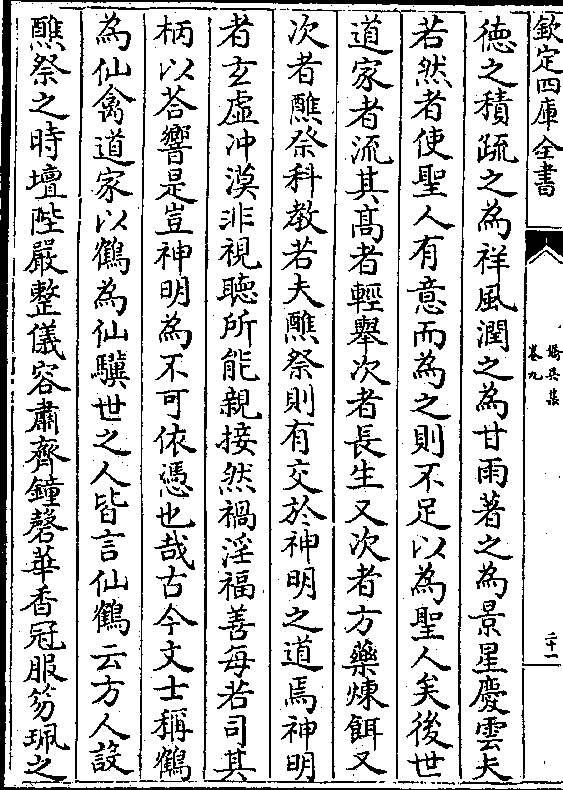 欽定四庫全書
僑吳集
卷九
二十一
德之積疏之為祥風潤之為甘雨著之為景星慶雲夫
若然者使聖人有意而為之則不足以為聖人矣後世
道家者流其髙者輕舉次者長生又次者方藥煉餌又
次者醮祭科教若夫醮祭則有交於神明之道焉神明
者玄虛冲漠非視聽所能親接然禍淫福善每若司其
柄以荅響是豈神明為不可依憑也哉古今文士稱鶴
為仙禽道家以鶴為仙驥世之人皆言仙鶴云方人設
醮祭之時壇陛嚴整儀容肅齊鐘磬華香冠服笏珮之